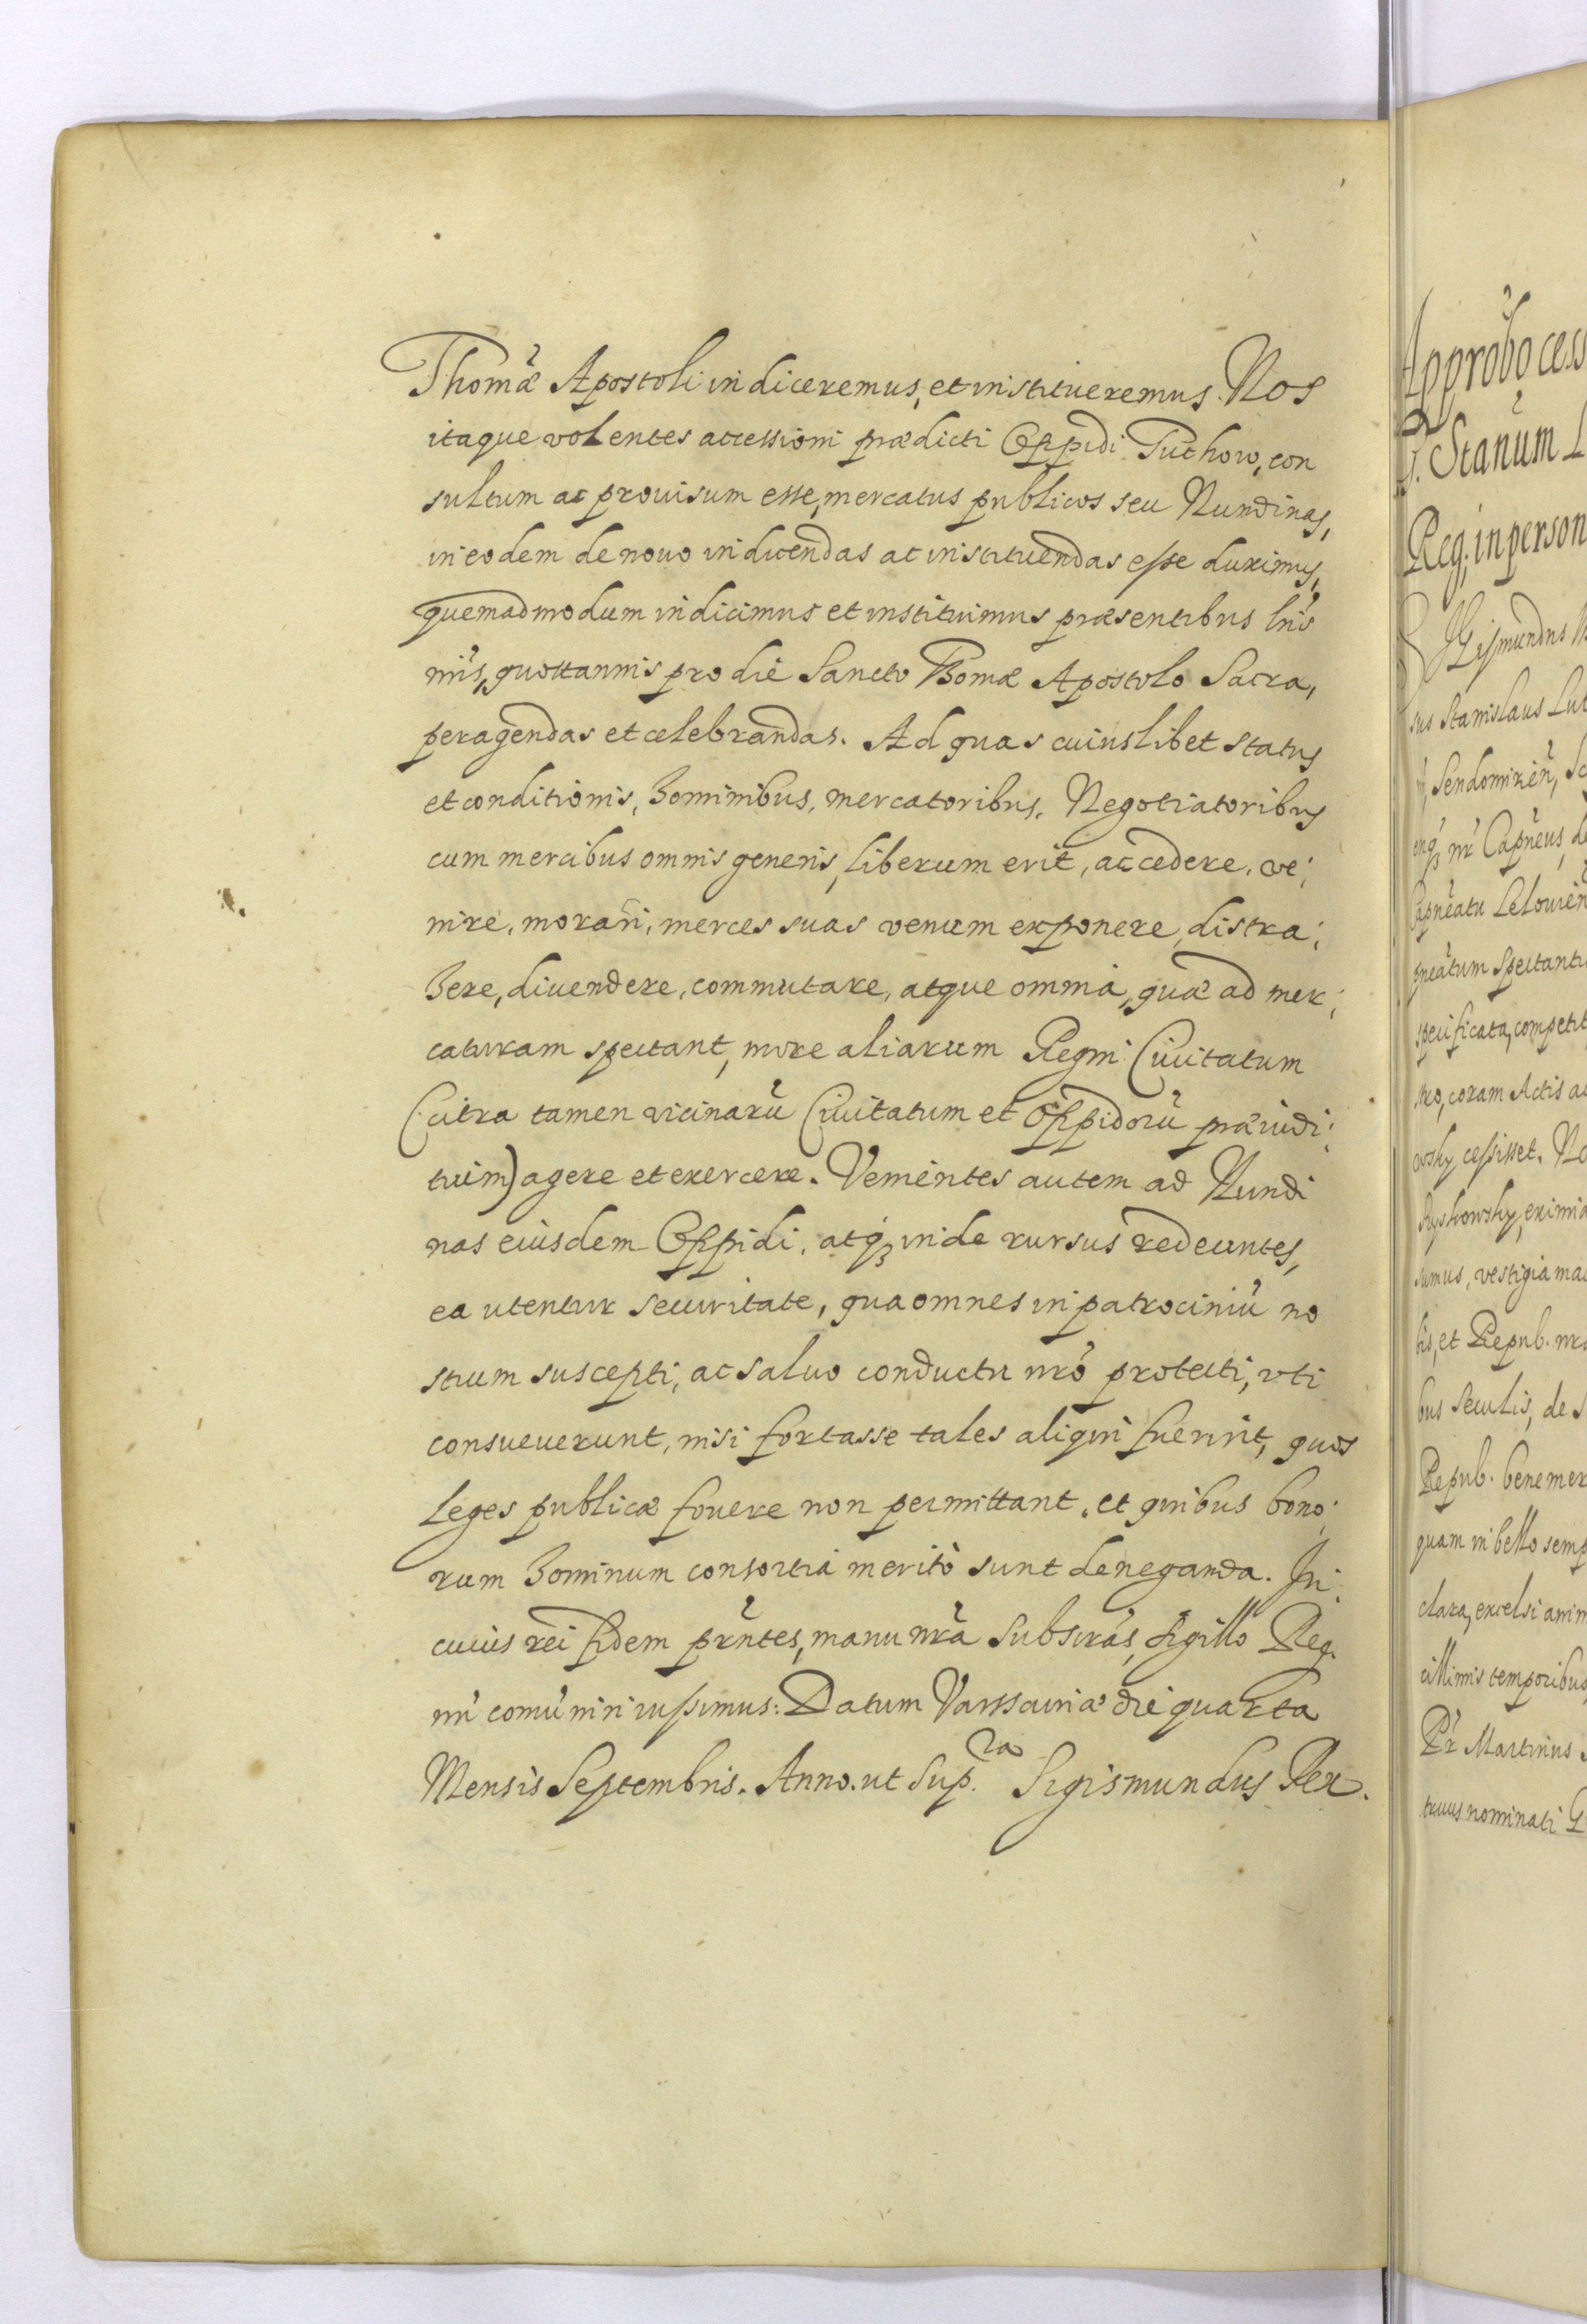 Thomæ Apostoli indiceremus, et institueremus. Nos
itaque volentes accessioni prædicti Oppidi Tuchow, con
sultum ac prouisum esse, mercatus publicos seu Nundinas,
in eodem de nouo indicendas ac instituendas esse duximus,
quemadmodum indicimus et instituimus præsentibus lris
nris, quottannis pro die Sancto Thomæ Apostolo Sacra,
peragendas et celebrandas. Ad quas cuiuslibet status
et conditionis, hominibus, mercatoribus, Negotiatoribus
cum mercibus omnis generis, liberum erit, accedere, ve:
nire, morari, merces suas venum exponere, distra:
here, diuendere, commutare, atque omnia, quæ ad mer:
caturam spectant, more aliarum Regni Ciuitatum
(citra tamen vicinarũ Ciuitatum et Oppidorũ præiudi:
tium) agere et exercere. Venientes autem ad Nundi
nas eiusdem Oppidi, atq; inde rursus redeuntes,
ea utentur securitate, qua omnes in patrociniũ no
strum suscepti, ac saluo conductu nrõ protecti, uti
consueuerunt, nisi fortasse tales aliqui fuerint, quos
Leges publicæ fouere non permittant, et quibus bono:
rum hominum consortia meritò sunt deneganda. In
cuius rei fidem prñtes, manu nrã Subscrás, Sigillo Reg
ni comũniri iussimus. Datum Varssauiæ die quarta
Mensis Septembris. Anno. ut Sup.ra Sigismundus Rex.
Approbo cess
Stanũm L
Reg: in person
Sigismundus
sus Stanislaus Lub
Sendomirień, Sc
enq; nr Capneus, de
Capneatu Lelouień
pneatum Spectanti
specificata, competit
stro, coram Actis ac
owsky cessisset. No
Ryskowsky, eximia
sumus, vestigia mai
bis, et Repub. nra
bus Seculis, de s
Repub. benemer
quam in bello semp
clara, excelsi anim
cillimis temporibus
Pr Martinus
truus nominati G